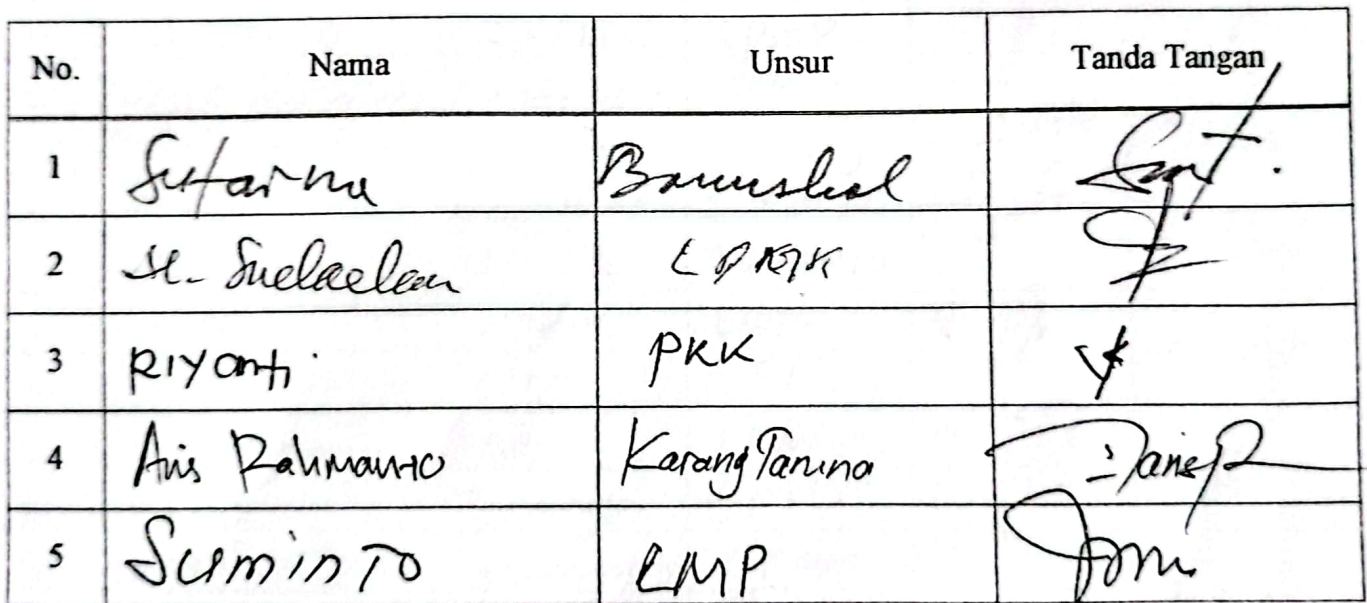 No. Nama Unsur Tanda Tangan
1 Sutarna
2 H. Suelaelan
3 Riyanti PKK
4 Anis Rahmanto Karang Taruna
5 Suminto LMP